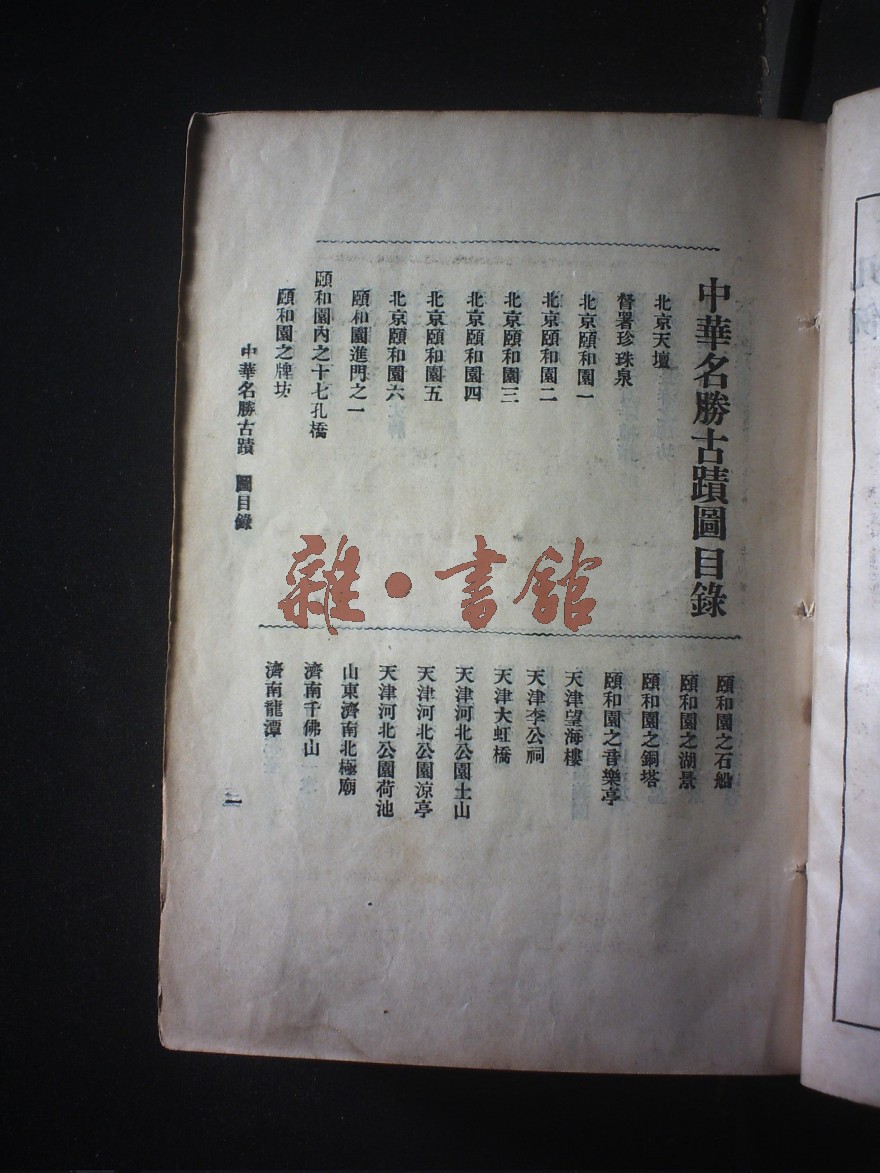 中華名勝古蹟圖目錄
北京天壇
督署珍珠泉
北京頤和園一
北京頤和園二
北京頤和園三
北京頤和園四
北京頤和園五
北京頤和園六
頤和園進門之一
頤和園內之十七孔橋
頤和園之牌坊
頤和園之石船
頤和園之湖景
頤和園之銅塔
頤和園之音樂亭
天津望海樓
天津李公祠
天津大虹橋
天津河北公園土山
天津河北公園涼亭
天津河北公園荷池
山東濟南北極廟
濟南千佛山
濟南龍潭
中華名勝古蹟 圖目錄
一
雜·書館